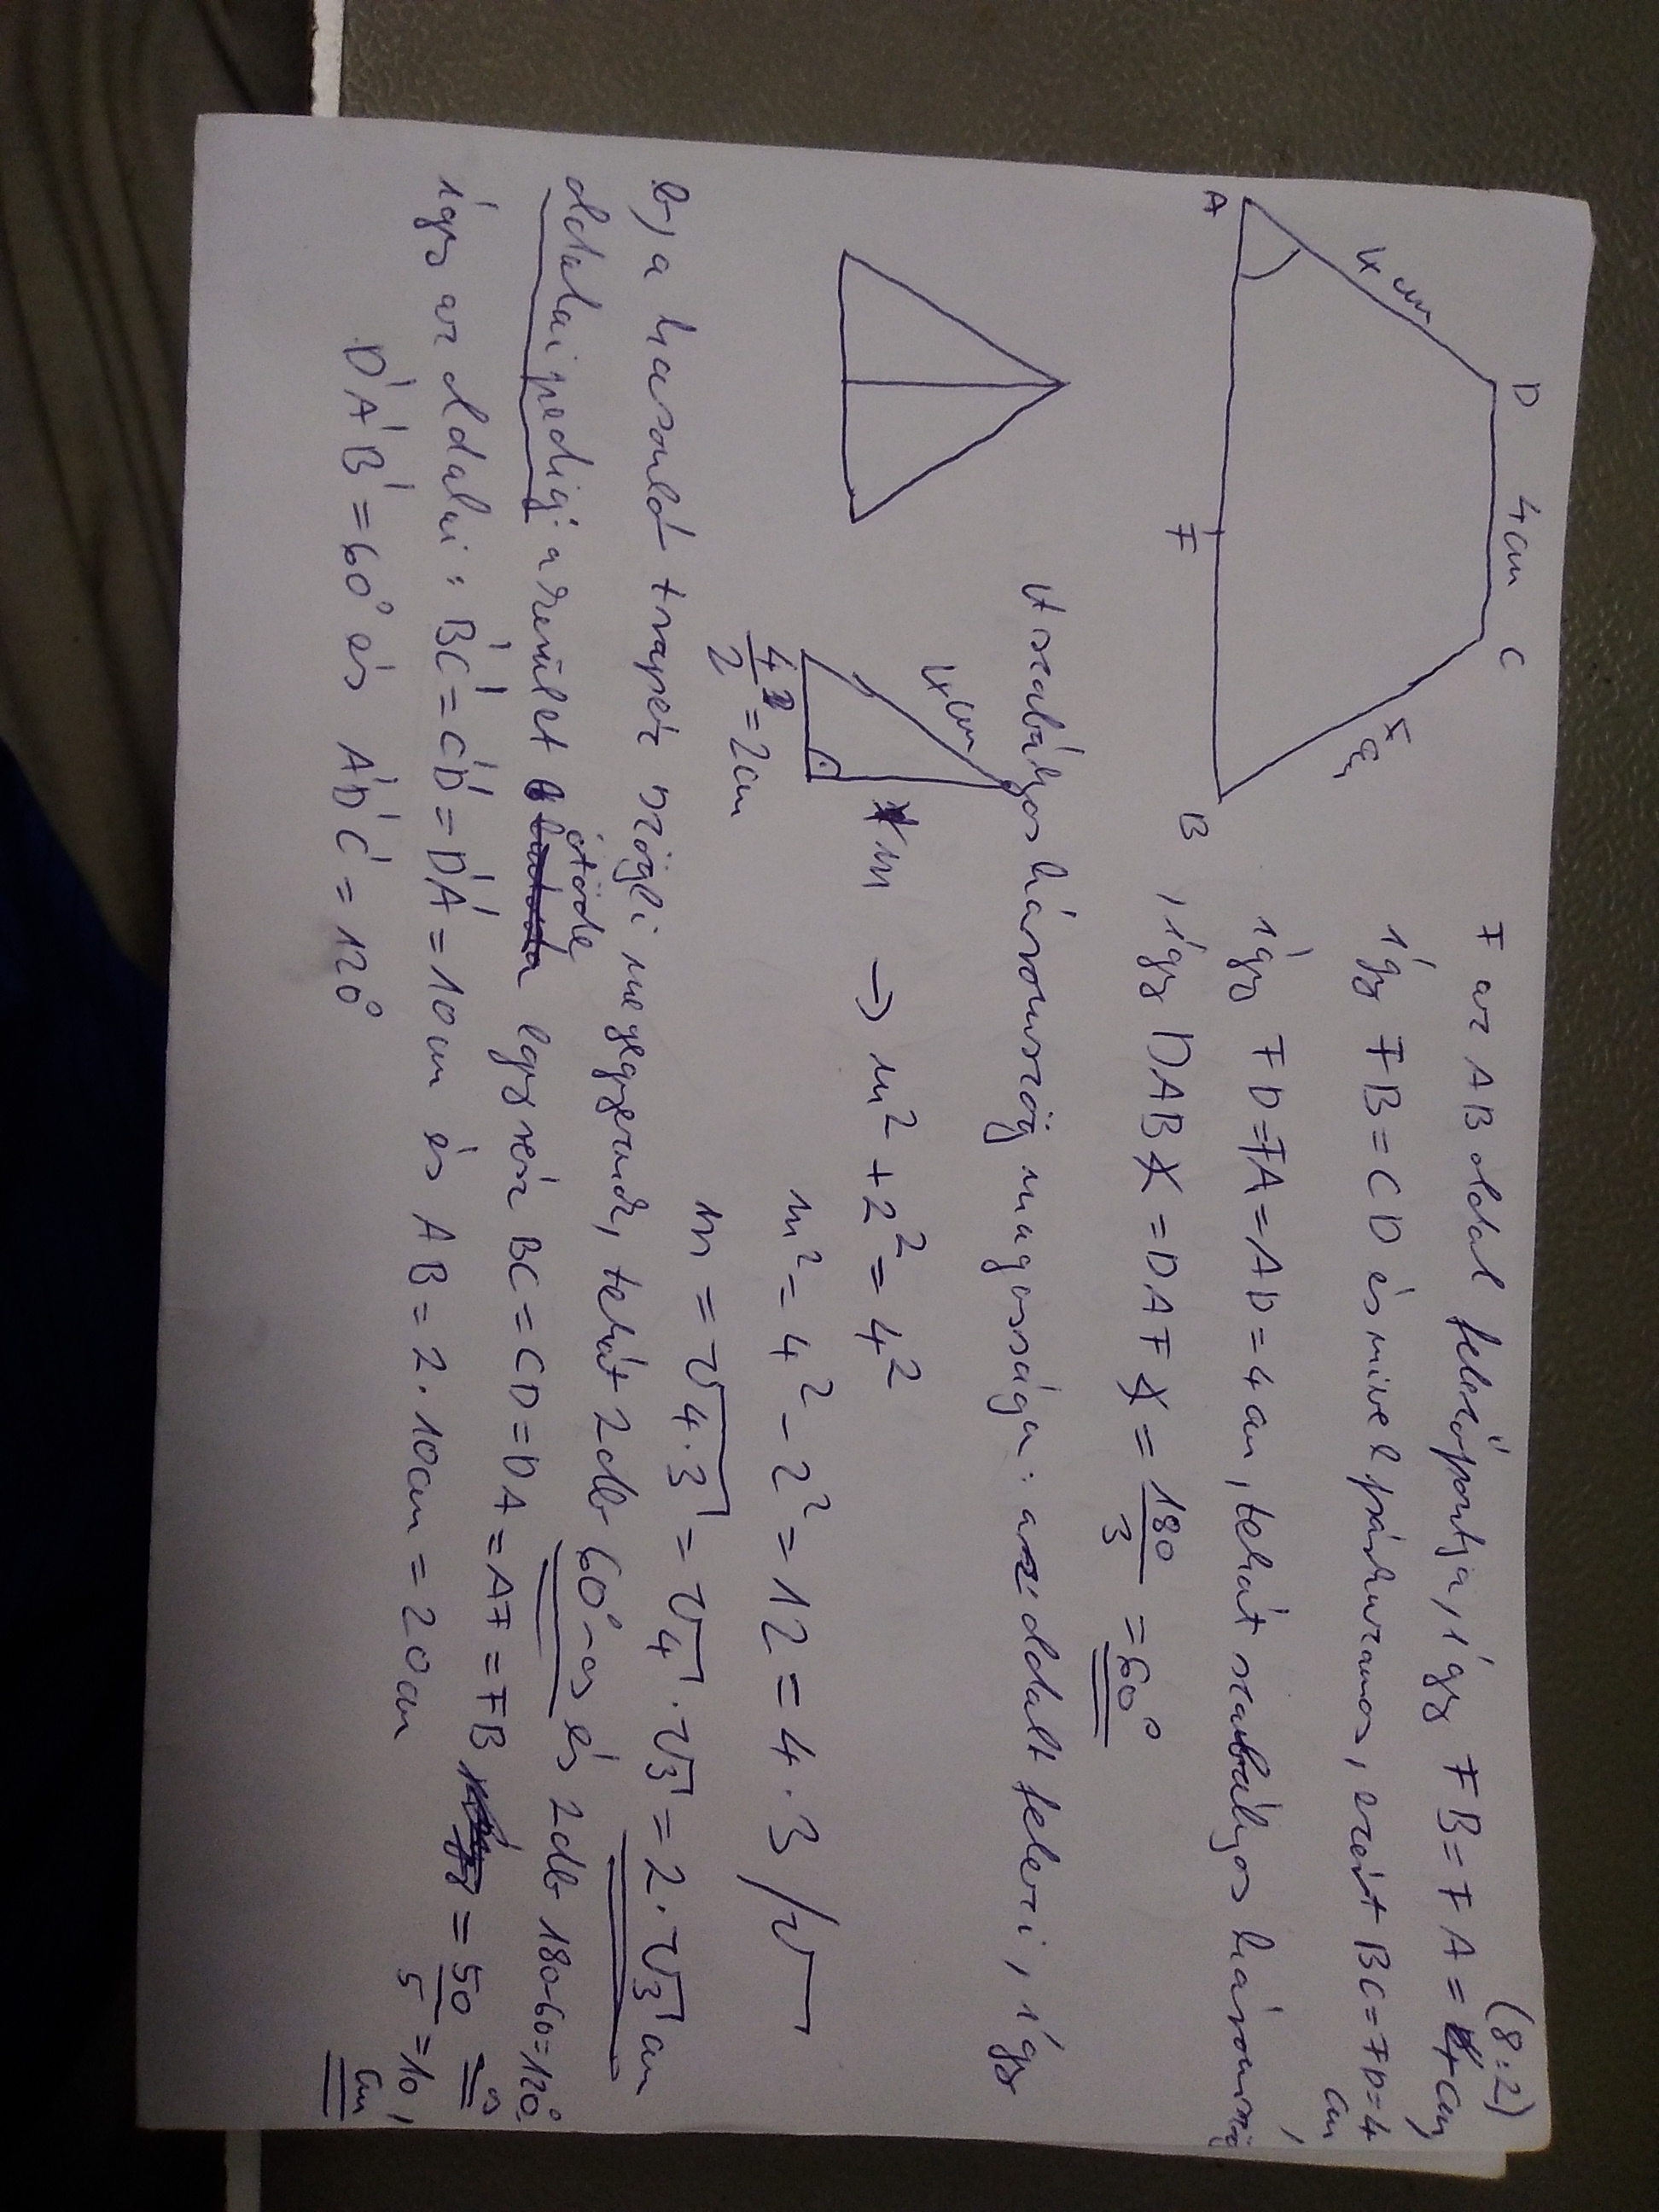 (8:2)
D 4cm C
4cm
4cm
A F B
F az AB oldal felezőpontja, így FB=FA=4cm,
így FB=CD és mivel párhuzamos, ezért BC=FD=4 cm,
így FD=FA=AD=4cm, tehát szabályos háromszög
, így DAB∢=DAF∢=180/3=60°
A szabályos háromszög magassága: az oldalt felezi, így
4cm
m → m²+2²=4²
4/2=2cm
m²=4²-2²=12=4·3 /√
m=√4·3=√4·√3=2·√3 cm
b, a hasonló trapéz szögei megegyeznek, tehát 2db 60°-os és 2db 180-60=120°-os
oldalai pedig: a kerület ötöde, egyrészt BC=CD=DA=AF=FB=50/5=10 cm,
így az oldalai: B'C'=C'D'=D'A'=10cm és AB=2·10cm=20cm
D'A'B'=60° és A'D'C'=120°